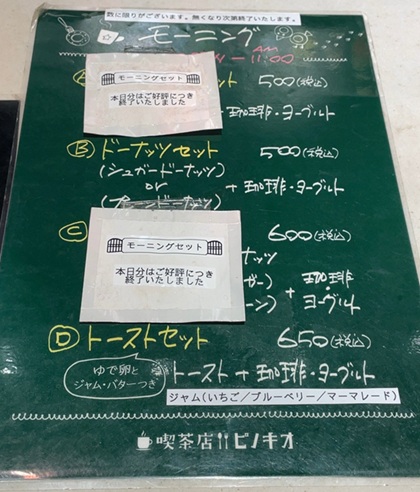 数に限りがございます。無くなり次第終了いたします。
モーニング
AM
〜11:00
モーニングセット
本日分はご好評につき
終了いたしました
500(税込)
珈琲・ヨーグルト
Ⓑ ドーナッツセット 500(税込)
(シュガードーナッツ)
or + 珈琲・ヨーグルト
(プレーンドーナッツ)
Ⓒ 600(税込)
モーニングセット
本日分はご好評につき
終了いたしました
ナッツ
ガー) + 珈琲・
ーン) ヨーグルト
Ⓓ トーストセット 650(税込)
ゆで卵と
ジャム・バターつき
トースト + 珈琲・ヨーグルト
ジャム(いちご/ブルーベリー/マーマレード)
喫茶店 ピノキオ